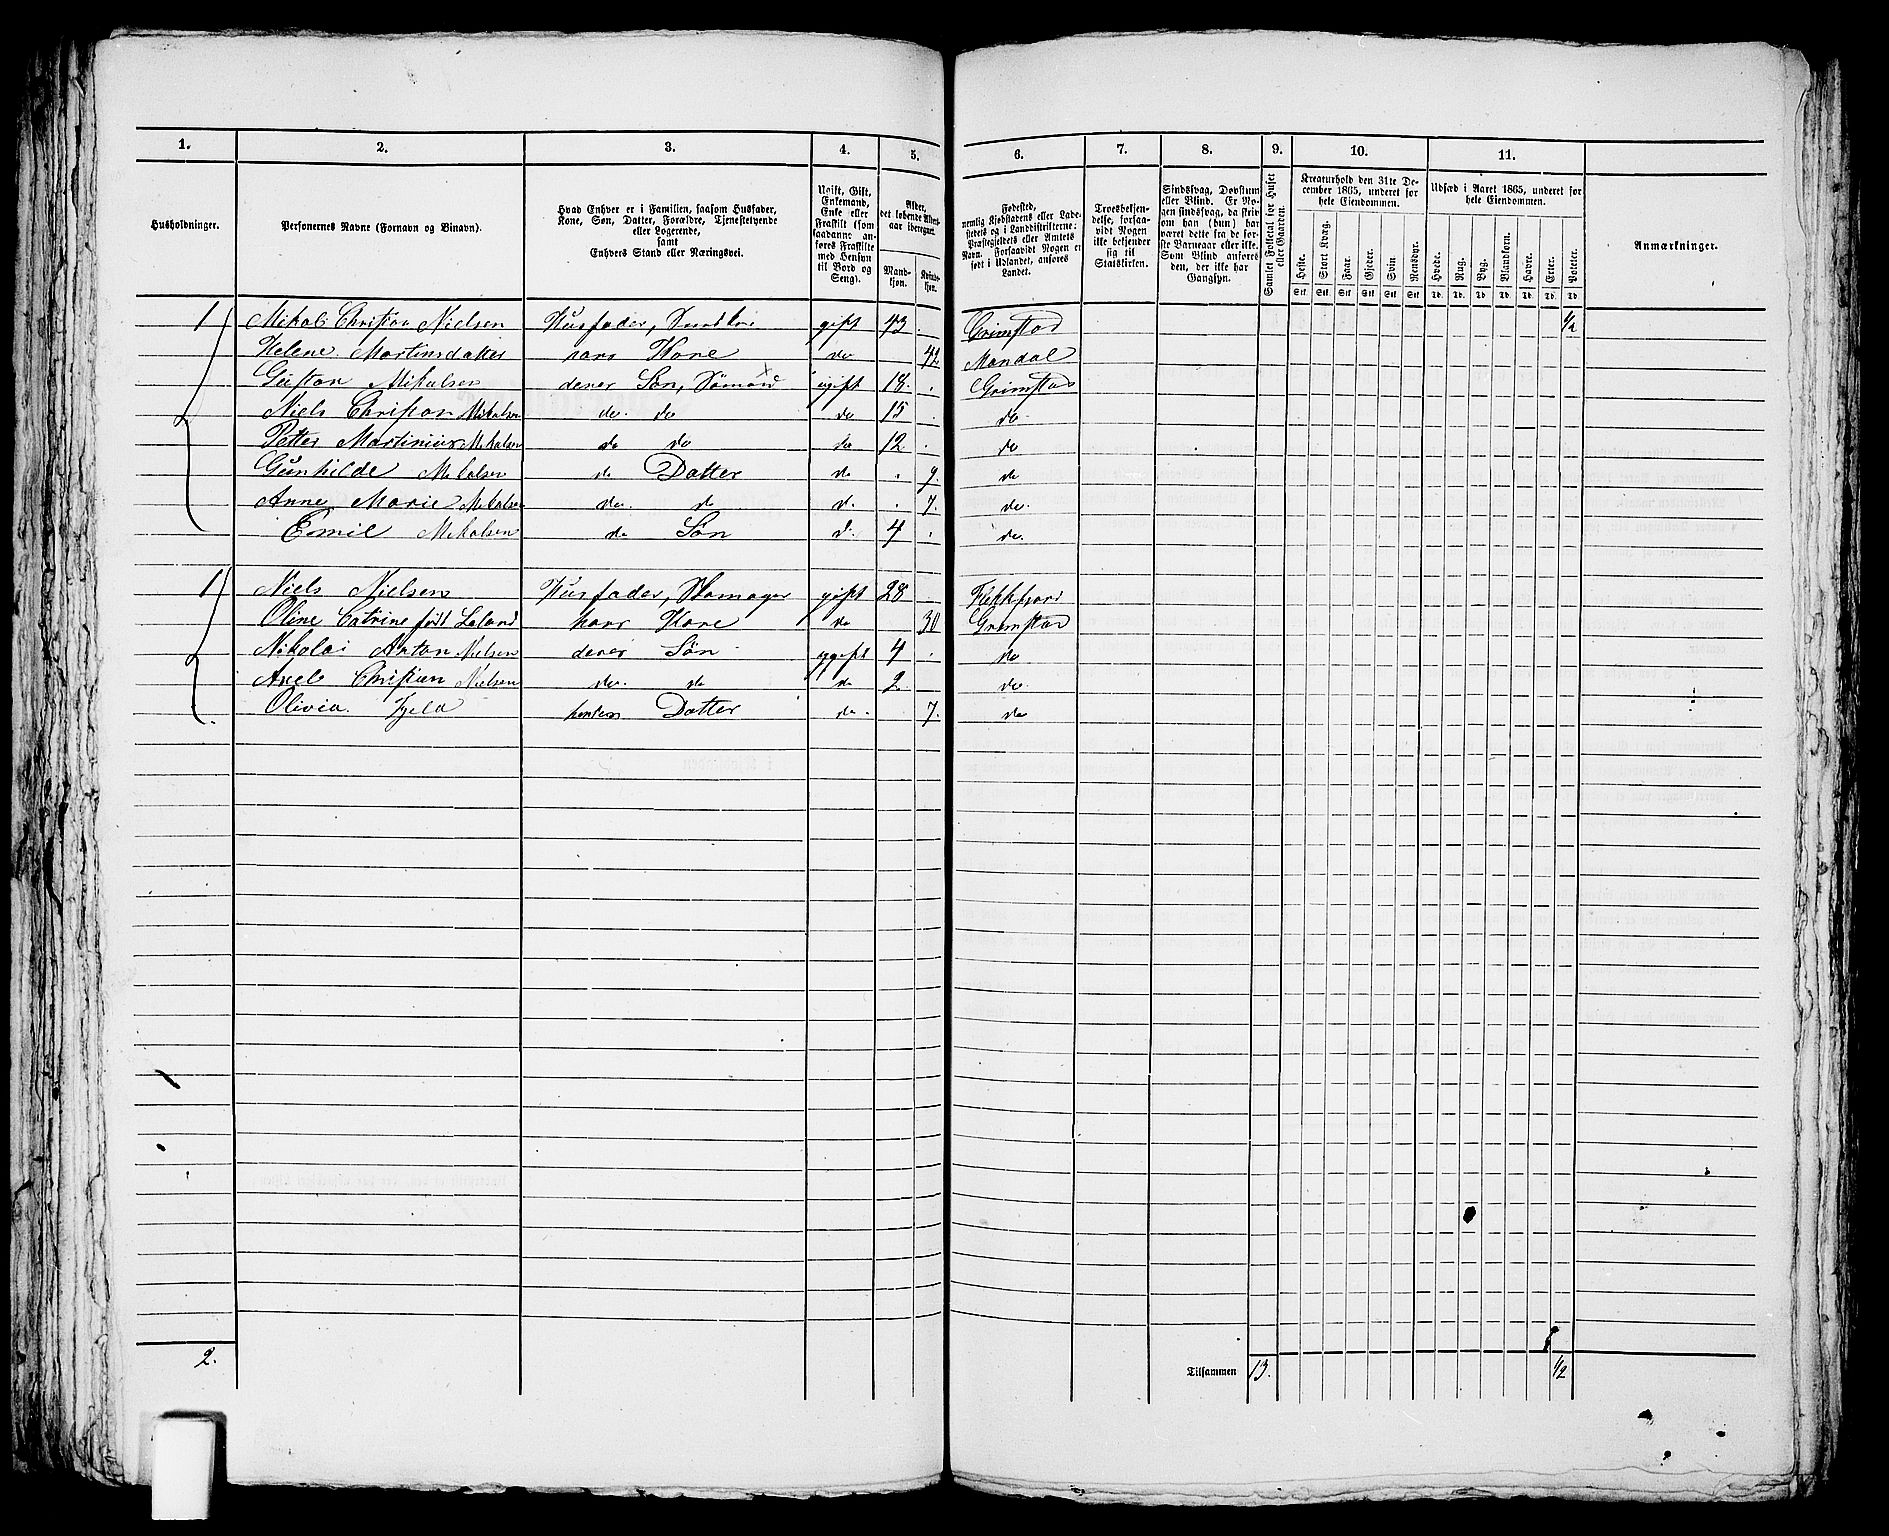 1. 2. 3. 4. 5. 6. 7. 8. 9. 10. 11.
Husholdninger.
Personernes Navne (Fornavn og Binavn).
Hvad Enhver er i Familien, saasom Husfader, Kone, Søn, Datter, Forældre, Tjenestetyende eller Logerende, samt Enhvers Stand eller Næringsvei.
Ugift, Gift, Enkemand, Enke eller Fraskilt (som saadanne anføres Fraskilte med Hensyn til Bord og Seng).
Alder, det løbende Alders-aar iberegnet.
Mandkjøn. Kvindekjøn.
Fødested, nemlig Kjøbstadens eller Ladestedets og i Landdistrikterne: Præstegjeldets eller Amtets Navn. Forsaavidt Nogen er født i Udlandet, anføres Landet.
Troesbekjendelse, forsaavidt Nogen ikke bekjender sig til Statskirken.
Sindssvag, Døvstum eller Blind. Er Nogen sindssvag, da skrives om han (hun) har været dette fra de første Barneaar eller ikke. Som Blind anføres den, der ikke har Gangsyn.
Samlet Folketal for Huset eller Gaarden.
Kreaturhold den 31te December 1865, underet for hele Eiendommen.
Heste. Stort Kvæg. Faar. Gjeder. Svin. Rensdyr.
Stk. Stk. Stk. Stk. Stk. Stk.
Udsæd i Aaret 1865, underet for hele Eiendommen.
Hvede. Rug. Byg. Blandkorn. Havre. Erter. Poteter.
Td. Td. Td. Td. Td. Td. Td.
Anmærkninger.
1 Mikal Christian Nielsen Husfader, gift 43 . Grimstad 1/2
Helene Martinsdatter hans Kone do 42 Mandal
Gustav Mikalsen deres Søn, Sømand ugift 18. . Grimstad
Niels Christian Mikalsen do. do do 15 . do
Petter Martinius Mikalsen do do do 12. . do
Gunhilde Mikalsen do Datter do . 9. do
Anne Marie Mikalsen do. do d. . 7. do.
Emil Mikalsen do Søn d. 4 . do.
1 Niels Nielsen Husfader, Skomager gift 28 Flekkefjord
Oline Catrine født Leland hans Kone do 30 Grimstad
Nikolai Anton Nielsen deres Søn ugift 4 . do
Axel Christian Nielsen do. do do 2. do
Olivia do. 7. do
Datter
2. Tilsammen 13. 1/2